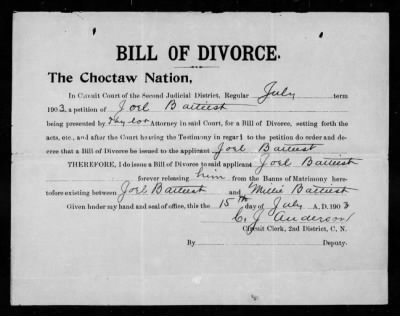 BILL OF DIVORCE.
The Choctaw Nation,
In Circuit Court of the Second Judicial District, Regular July term
1903, a petition of Joel Battiest
being presented by Attorney in said Court, for a Bill of Divorce, setting forth the
acts, etc., and after the Court hearing the Testimony in regard to the petition do order and de-
cree that a Bill of Divorce be issued to the applicant Joel Battiest
THEREFORE, I do issue a Bill of Divorce to said applicant Joel Battiest
forever releasing him from the Banns of Matrimony here-
tofore existing between Joel Battiest and Millie Battiest
Given under my hand and seal of office, this the 15th day of July A. D. 1903
C. J. Anderson
Circuit Clerk, 2nd District, C. N.
By Deputy.